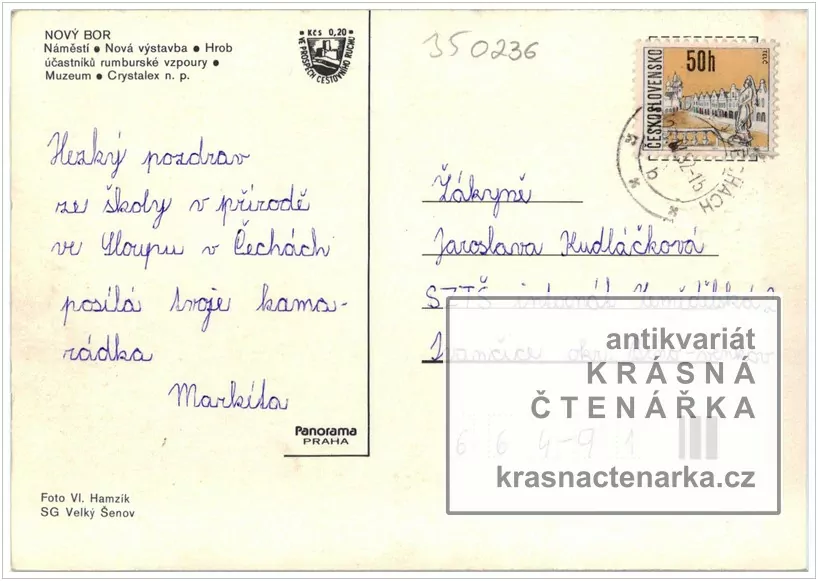 NOVÝ BOR
Náměstí ● Nová výstavba ● Hrob
účastníků rumburské vzpoury ●
Muzeum ● Crystalex n. p.
Kčs 0,20
VE PROSPĚCH CESTOVNÍHO RUCHU
350236
ČESKOSLOVENSKO
50h
Hezký pozdrav
ze školy v přírodě
ve Sloupu v Čechách
posílá tvoje kama-
rádka
Markéta
Panorama
PRAHA
Foto Vl. Hamzík
SG Velký Šenov
Žákyně
Jaroslava Kudláčková
SZTŠ internát
Ivančice okr. Brno-venkov
664-91
antikvariát
KRÁSNÁ
ČTENÁŘKA
krasnactenarka.cz